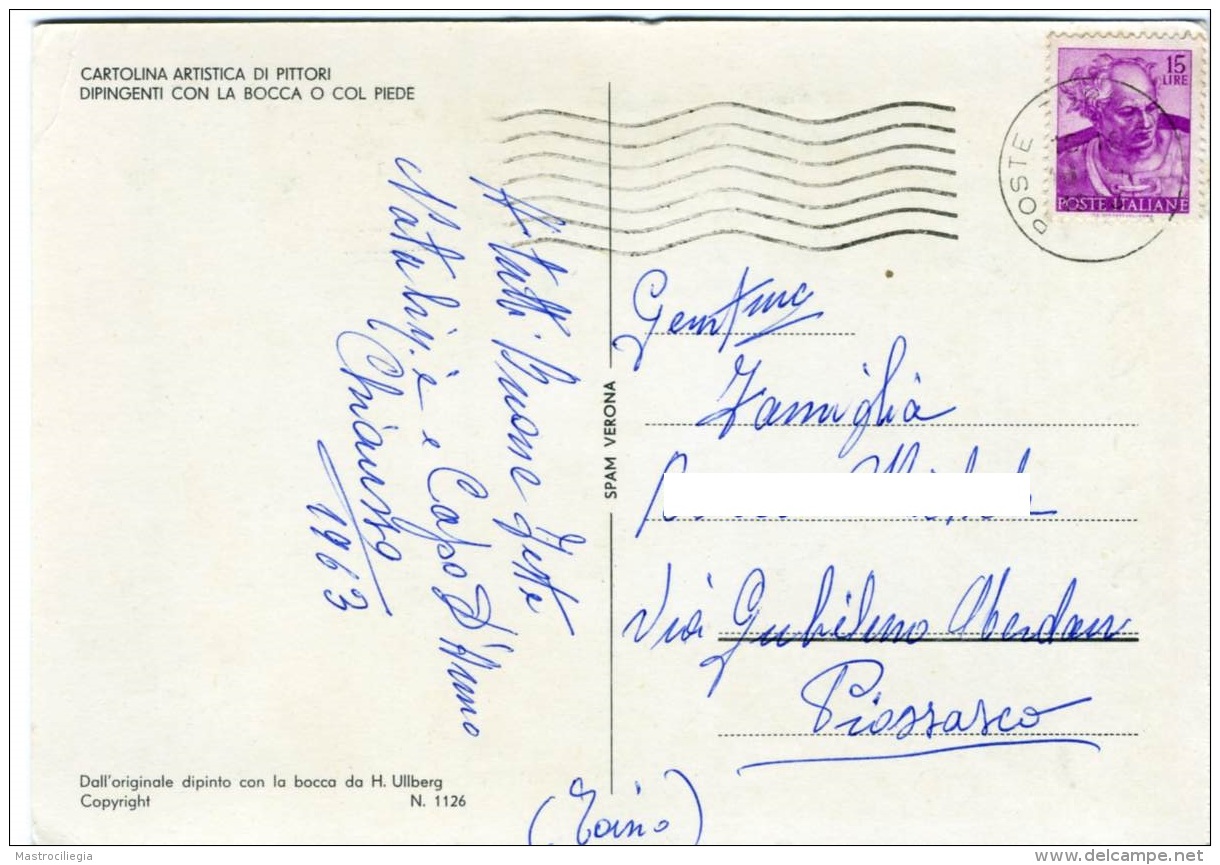 CARTOLINA ARTISTICA DI PITTORI
DIPINGENTI CON LA BOCCA O COL PIEDE
15
LIRE
POSTE ITALIANE
POSTE
A tutti Buone feste
Natalizie e Capo D'Anno
1963
SPAM VERONA
Famiglia
Via Gulielmo Oberdan
Piossasco
(Torino)
Dall'originale dipinto con la bocca da H. Ullberg
Copyright N. 1126
Mastrociliegia
www.delcampe.net